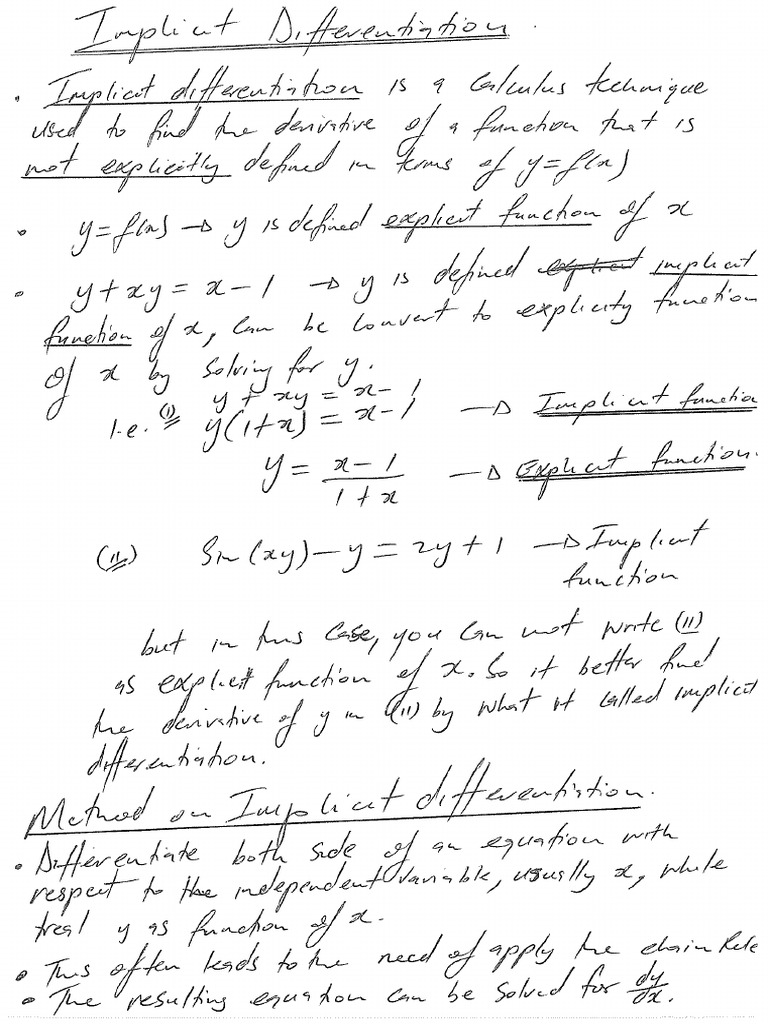 Implicit Differentiation.
• Implicit differentiation is a calculus technique
used to find the derivative of a function that is
not explicitly defined in terms of y=f(x)
• y=f(x) → y is defined explicit function of x
• y+xy = x-1 → y is defined explicit implicit
function of x, can be convert to explicity function
of x by solving for y.
y + xy = x-1
i.e. (i) y(1+x) = x-1 → Implicit function
y = \frac{x-1}{1+x} → Explicit function.
(ii) Sin(xy)-y = 2y+1 → Implicit
function
but in this case, you can not write (ii)
as explicit function of x. So it better find
the derivative of y in (ii) by what it called implicit
differentiation.
Method on Implicit differentiation.
• Differentiate both side of an equation with
respect to the independent variable, usually x, while
treat y as function of x.
• This often leads to the need of apply the chain Rule
• The resulting equation can be solved for \frac{dy}{dx}.